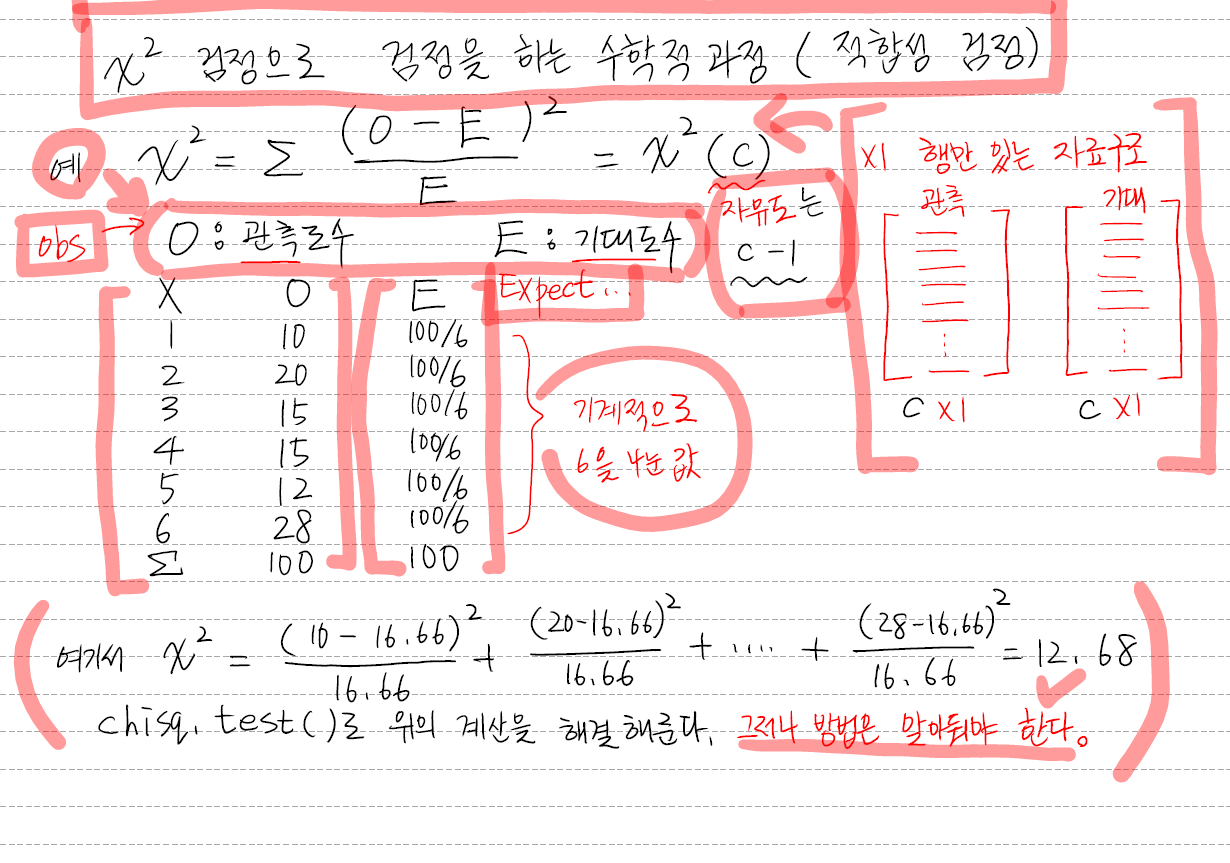 χ² 검정으로 검정을 하는 수학적 과정 ( 적합성 검정)
예 χ² = Σ (O - E)² / E = χ² (c)
자유도는
c - 1
obs O : 관측도수 E : 기대도수
X O E Expect...
1 10 100/6
2 20 100/6
3 15 100/6
4 15 100/6
5 12 100/6
6 28 100/6
Σ 100 100
기계적으로
6을 나눈 값
X1 행만 있는 자료구조
관측 기대
⋮ ⋮
C X1 C X1
여기서 χ² = (10 - 16.66)² / 16.66 + (20-16.66)² / 16.66 + .... + (28-16.66)² / 16.66 = 12.68
chisq.test()로 위의 계산을 해결해준다. 그러나 방법은 알아둬야 한다.